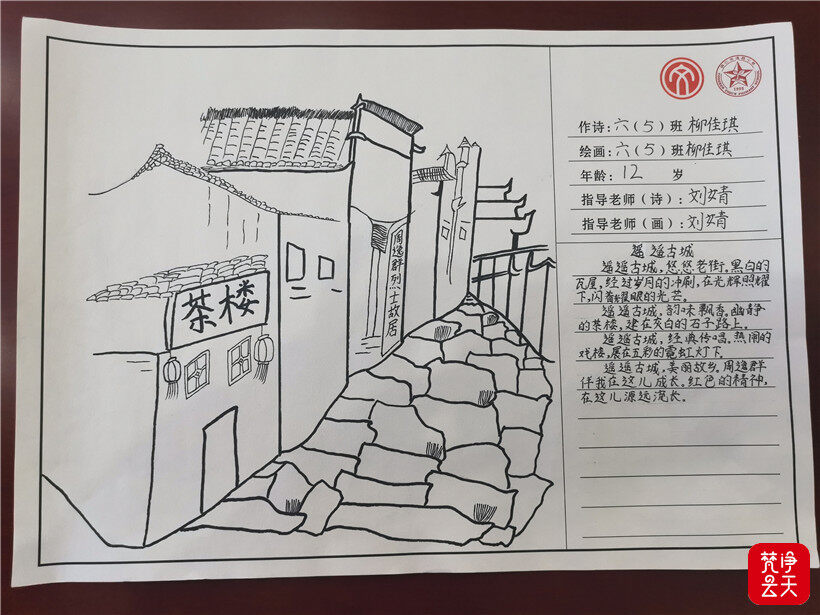 茶楼
周逸群烈士故居
作诗：六（5）班 柳佳琪
绘画：六（5）班 柳佳琪
年龄：12 岁
指导老师（诗）：刘婧
指导老师（画）：刘婧
遥遥古城
遥遥古城，悠悠老街。黑白的
瓦屋，经过岁月的冲刷，在光辉照耀
下，闪着耀眼的光芒。
遥遥古城，韵味飘香。幽静
的茶楼，建在灰白的石子路上。
遥遥古城，经典传唱。热闹的
戏楼，展在五彩的霓虹灯下。
遥遥古城，美丽故乡。周逸群
伴我在这儿成长。红色的精神，
在这儿源远流长。
梵净
云天